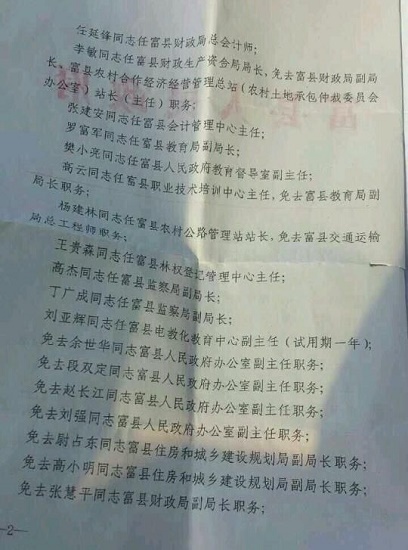 任延锋同志任富县财政局总会计师;
李敏同志任富县财政生产资合局局长,免去富县财政局副局
长、富县农村合作经济经营管理总站(农村土地承包仲裁委员会
办公室)站长(主任)职务;
张建安同志任富县会计管理中心主任;
罗富军同志任富县教育局副局长;
樊小亮同志任富县人民政府教育督导室副主任;
高云同志任富县职业技术培训中心主任,免去富县教育局副
局长职务;
杨建林同志任富县农村公路管理站站长,免去富县交通运输
局总工程师职务;
王贵森同志任富县林权登记管理中心主任;
高杰同志任富县监察局副局长;
丁广成同志任富县监察局副局长;
刘亚辉同志任富县电教化教育中心副主任(试用期一年);
免去余世华同志富县人民政府办公室副主任职务;
免去段双定同志富县人民政府办公室副主任职务;
免去赵长江同志富县人民政府办公室副主任职务;
免去刘强同志富县人民政府办公室副主任职务;
免去尉占东同志富县住房和城乡建设规划局副局长职务;
免去高小明同志富县住房和城乡建设规划局副局长职务;
免去张慧平同志富县财政局副局长职务;
—2—